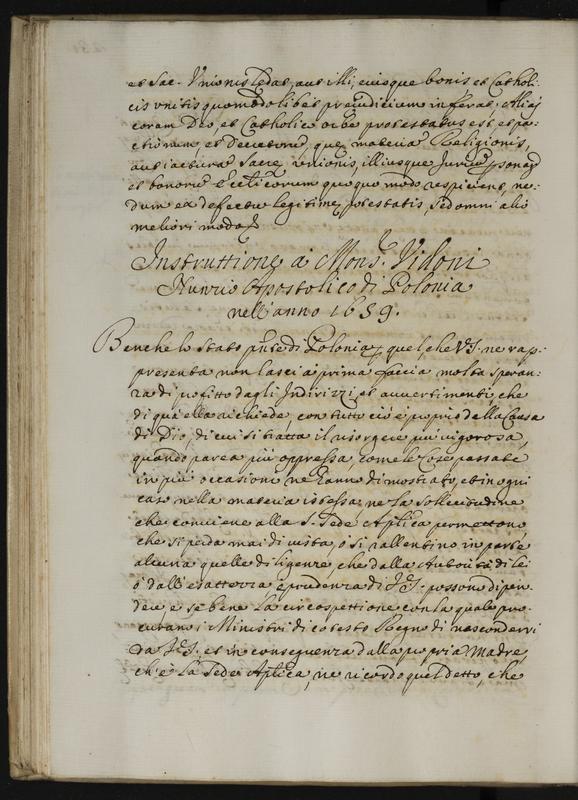 et Sac. Unionis Ledat, aut illi, eiusque bonis et Catholi:
cis unitis quomodolibet preiudicium inferat; Aliàs
coram Deo, et Catholico orbe protestatus est, et pa:
ctionum, et Decretorũ, que materia Religionis,
aut iactura Sacrę unionis, illiusque Jurium,
et bonorũ Eccl.ticorum quoquo modo respiciens, ne:
dum ex defectu legitimę potestatis, sed omni alio
meliori modo
Instruttione à Mons.r Vidoni
Nunzio Apostolico di Polonia
nell'anno 1659.
Benche lo stato pnte di Polonia, quel che V.S. ne rap:
presenta non lasci à prima faccia molta speran:
za di profitto dagli Indirizzi, et avvertimenti, che
di quà ella richiede, con tutto ciò è proprio della Causa
di Dio, di cui si tratta il risorgere più vigorosa,
quando parea più oppressa, come le Cose passate
in più occasioni ne hanno dimostrato, et in ogni
caso nella materia istessa, ne la sollecitudine
che conviene alla S. Sede Aplica permettono
che si perda mai di vista, ò si rallentino in parte
alcuna quelle diligenze, che dalla Autorità di lei
ò dall'esattezza e prudenza di V.S. possono dipen:
dere e se bene la circospettione con la quale pro:
curano i Ministri di cotesto Regno di nascondersi
da V.S. et in conseguenza dalla propria Madre,
ch'è la Sede Aplica, ne ricordo quel detto, che